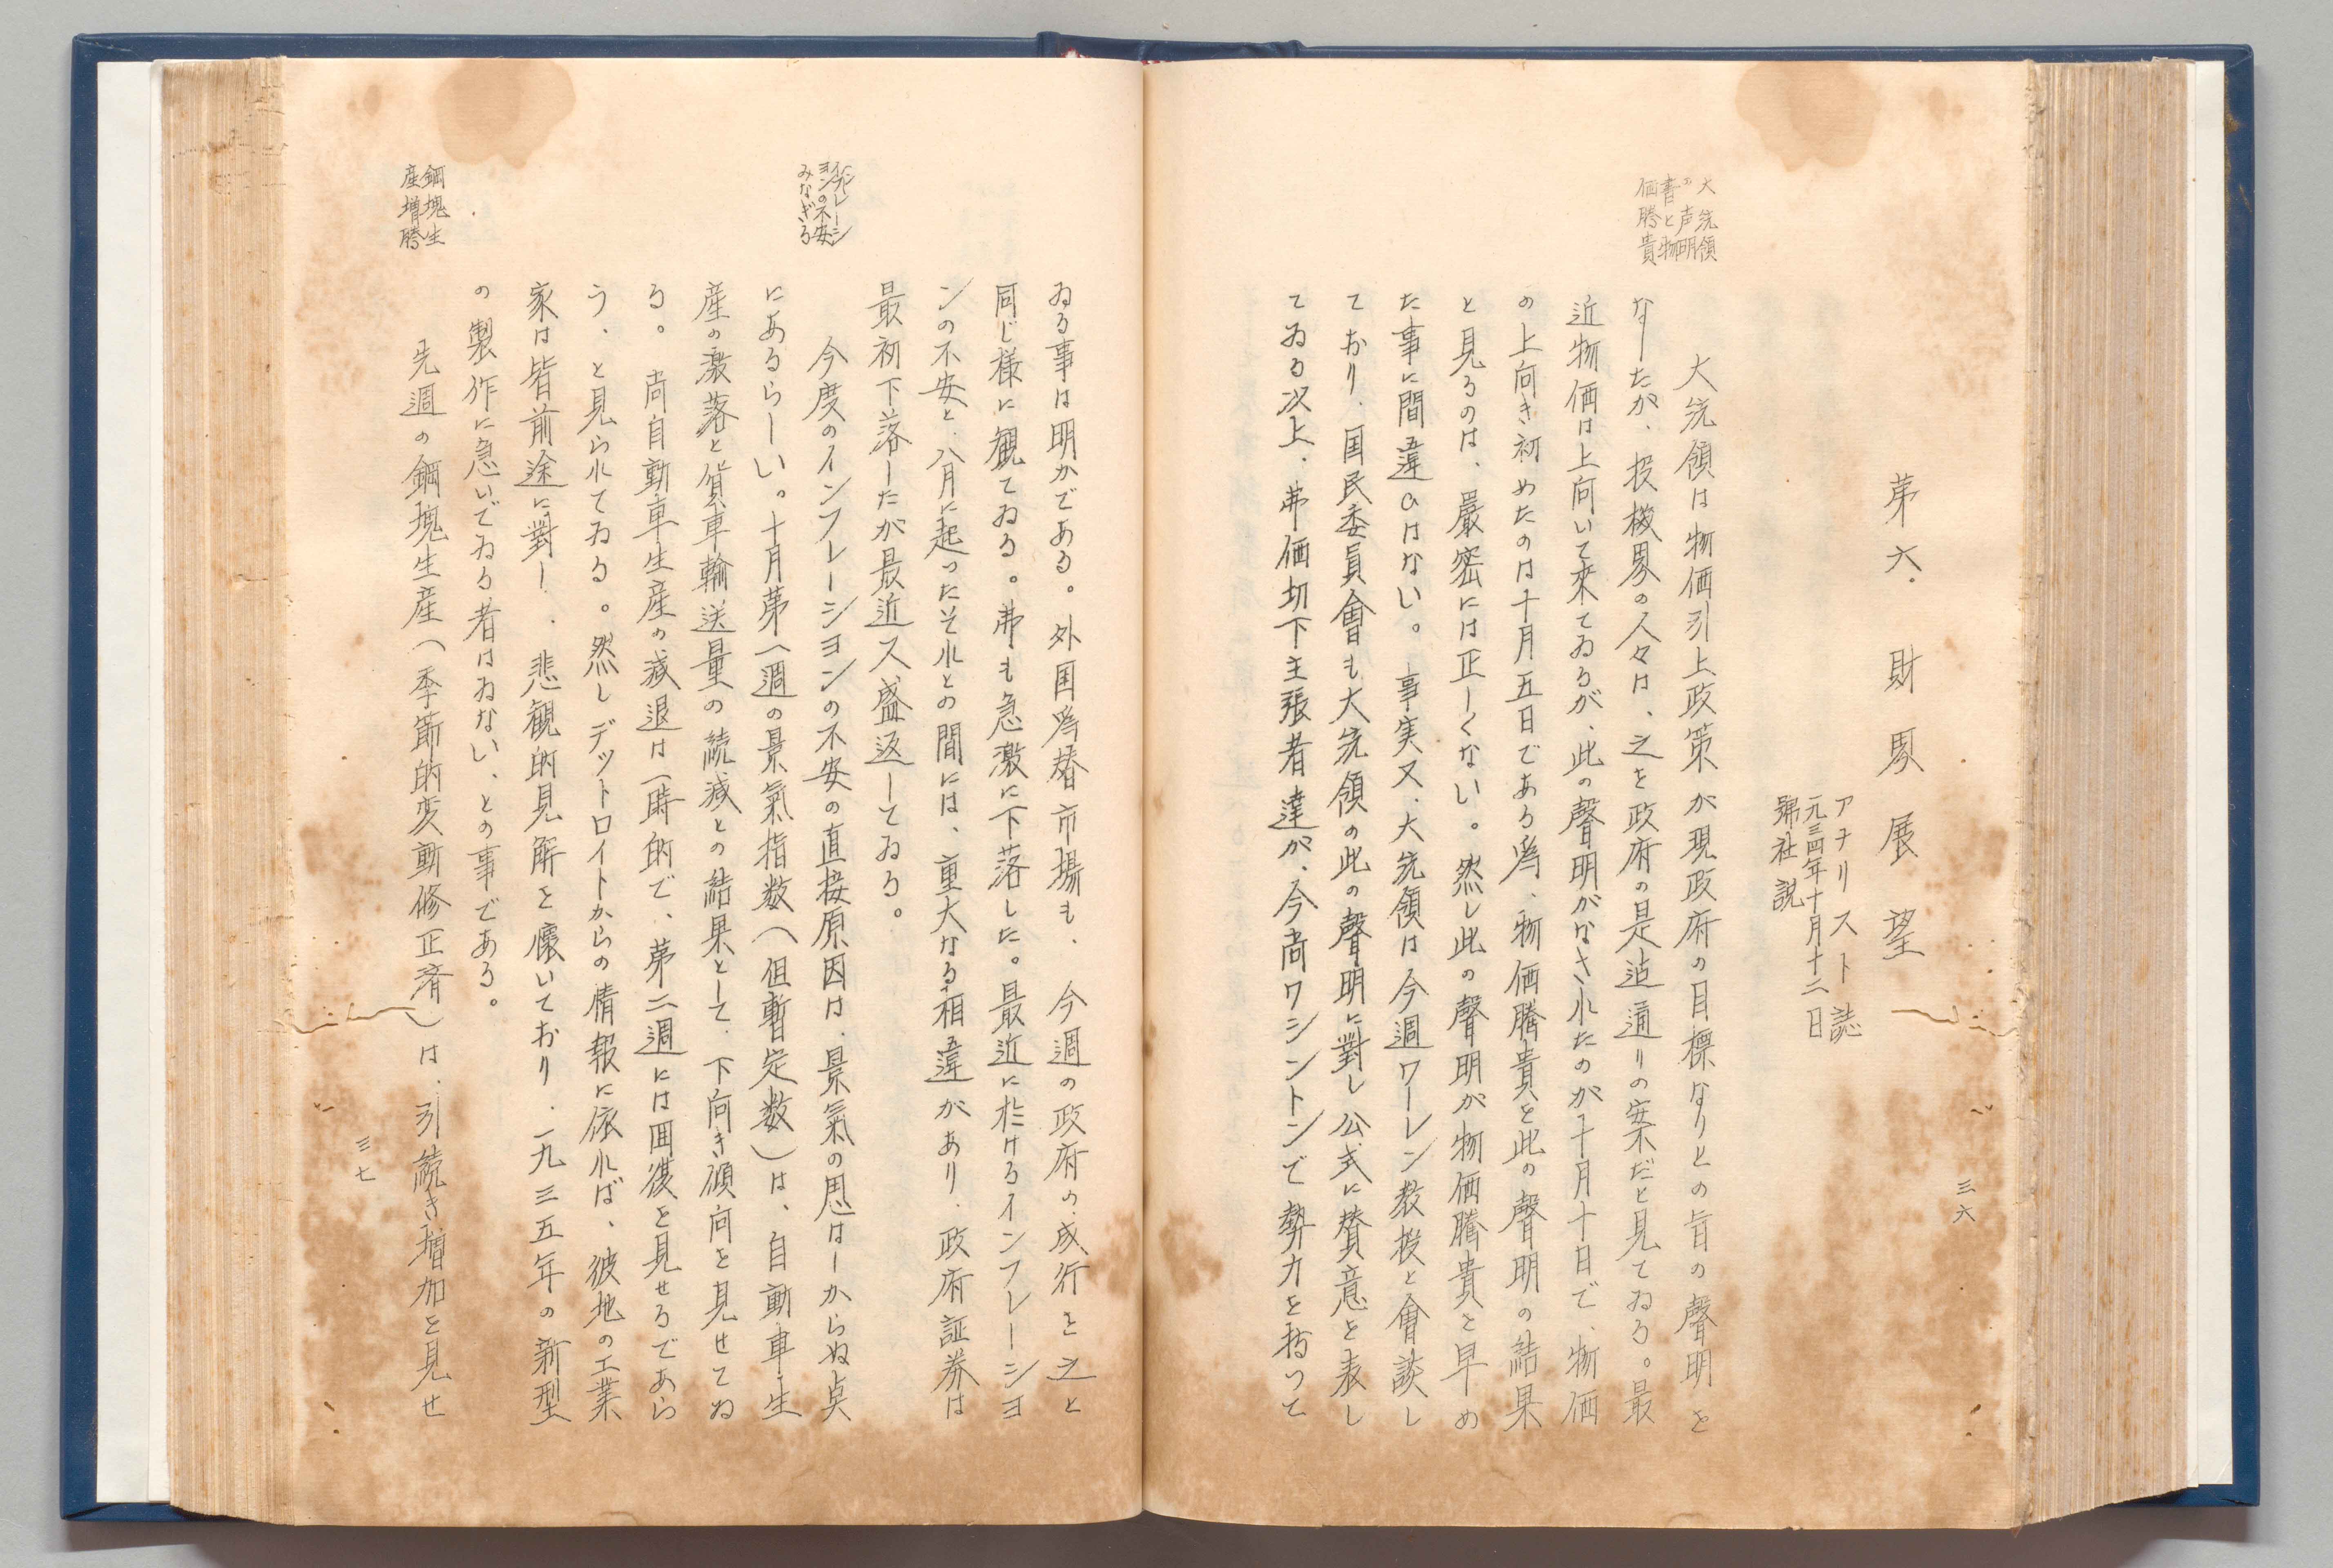 第六、財界展望
アナリスト誌
一九三四年十月十二日
號社説
大統領
の声明
書と物
価騰貴
大統領は物価引上政策が現政府の目標なりとの旨の聲明を
なしたが、投機界の人々は、之を政府の是迠通りの案だと見てゐる。最
近物価は上向いて來てゐるが、此の聲明がなされたのが十月十日で、物価
の上向き初めたのは十月五日である為、物価騰貴を此の聲明の結果
と見るのは、嚴密には正しくない。然し此の聲明が物価騰貴を早め
た事に間違ひはない。事実又、大統領は今週ワーレン教授と會談し
ており、国民委員會も大統領の此の聲明に對し公式に賛意を表し
てゐる以上、弗価切下主張者達が、今尚ワシントンで勢力を持つて
三六
ゐる事は明かである。外国為替市場も、今週の政府の成行を之と
同じ様に観てゐる。弗も急激に下落した。最近に於けるインフレーショ
ンの不安と、八月に起つたそれとの間には、重大なる相違があり、政府証券は
最初下落したが最近又盛返してゐる。
インフレーシ
ヨンの不安
みなぎる
今度のインフレーションの不安の直接原因は、景氣の思はしからぬ点
にあるらしい。十月第一週の景氣指数（但暫定数）は、自動車生
産の激落と貨車輸送量の続減との結果として、下向き傾向を見せてゐ
る。尚自動車生産の減退は一時的で、第二週には囬復を見せるであら
う、と見られてゐる。然しデットロイトからの情報に依れば、彼地の工業
家は皆前途に對し、悲観的見解を懐いており、一九三五年の新型
の製作に急いでゐる者はゐない、との事である。
鋼塊生
産増騰
先週の鋼塊生産（季節的変動修正済）は、引続き増加を見せ
三七